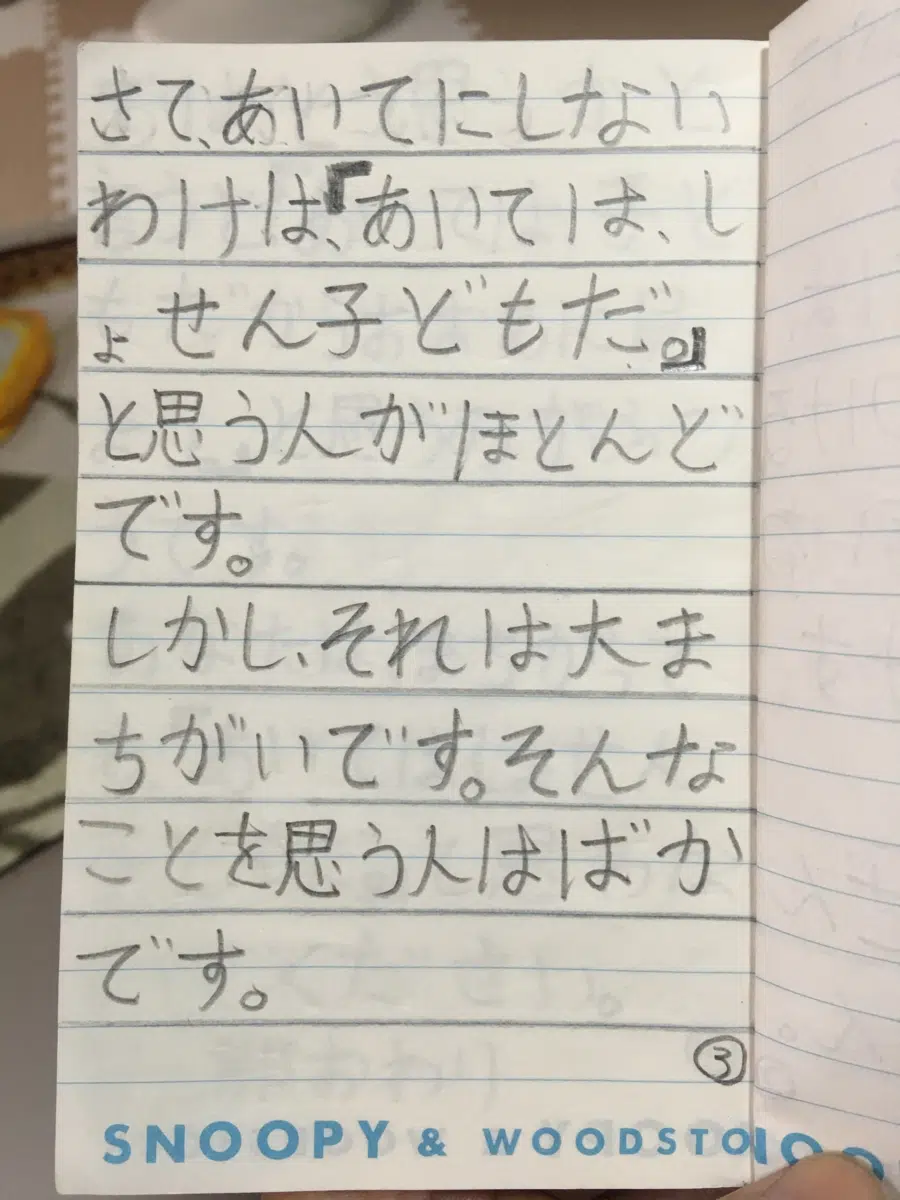 さて、あいてにしない
わけは、『あいては、し
ょせん子どもだ。』
と思う人がほとんど
です。
しかし、それは大ま
ちがいです。そんな
ことを思う人はばか
です。
③
SNOOPY & WOODSTO